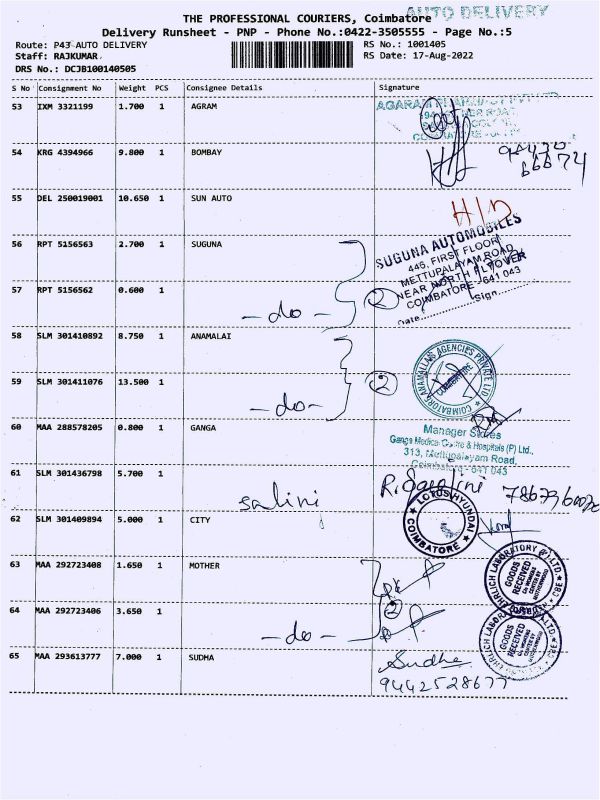 AUTO DELIVERY
THE PROFESSIONAL COURIERS, Coimbatore
Delivery Runsheet - PNP - Phone No.:0422-3505555 - Page No.:5
Route: P43 AUTO DELIVERY RS No.: 1001405
Staff: RAJKUMAR RS Date: 17-Aug-2022
DRS No.: DCJB100140505
S No Consignment No Weight PCS Consignee Details Signature
53 IXM 3321199 1.700 1 AGRAM
54 KRG 4394966 9.800 1 BOMBAY
55 DEL 250019001 10.650 1 SUN AUTO
H/D
56 RPT 5156563 2.700 1 SUGUNA
SUGUNA AUTOMOBILES
446, FIRST FLOOR
METTUPALAYAM ROAD
NEAR NORTH FLYOVER
COIMBATORE - 641 043
Date Sign
57 RPT 5156562 0.600 1
- do - 2
58 SLM 301410892 8.750 1 ANAMALAI
COIMBATORE ANAMALLAIS AGENCIES PRIVATE LTD
COIMBATORE
59 SLM 301411076 13.500 1
- do - 2
60 MAA 288578205 0.800 1 GANGA
Manager Stores
Ganga Medical Centre & Hospitals (P) Ltd.,
313, Mettupalayam Road,
Coimbatore - 641 043
61 SLM 301436798 5.700 1
salini R.
62 SLM 301409894 5.000 1 CITY
LOTUS HYUNDAI
COIMBATORE
63 MAA 292723408 1.650 1 MOTHER
EHRLICH LABORATORY (P) LTD. CBE
GOODS
RECEIVED
64 MAA 292723406 3.650 1
- do - 2
EHRLICH LABORATORY (P) LTD. CBE
GOODS
RECEIVED
65 MAA 293613777 7.000 1 SUDHA
Sudha
9442528677